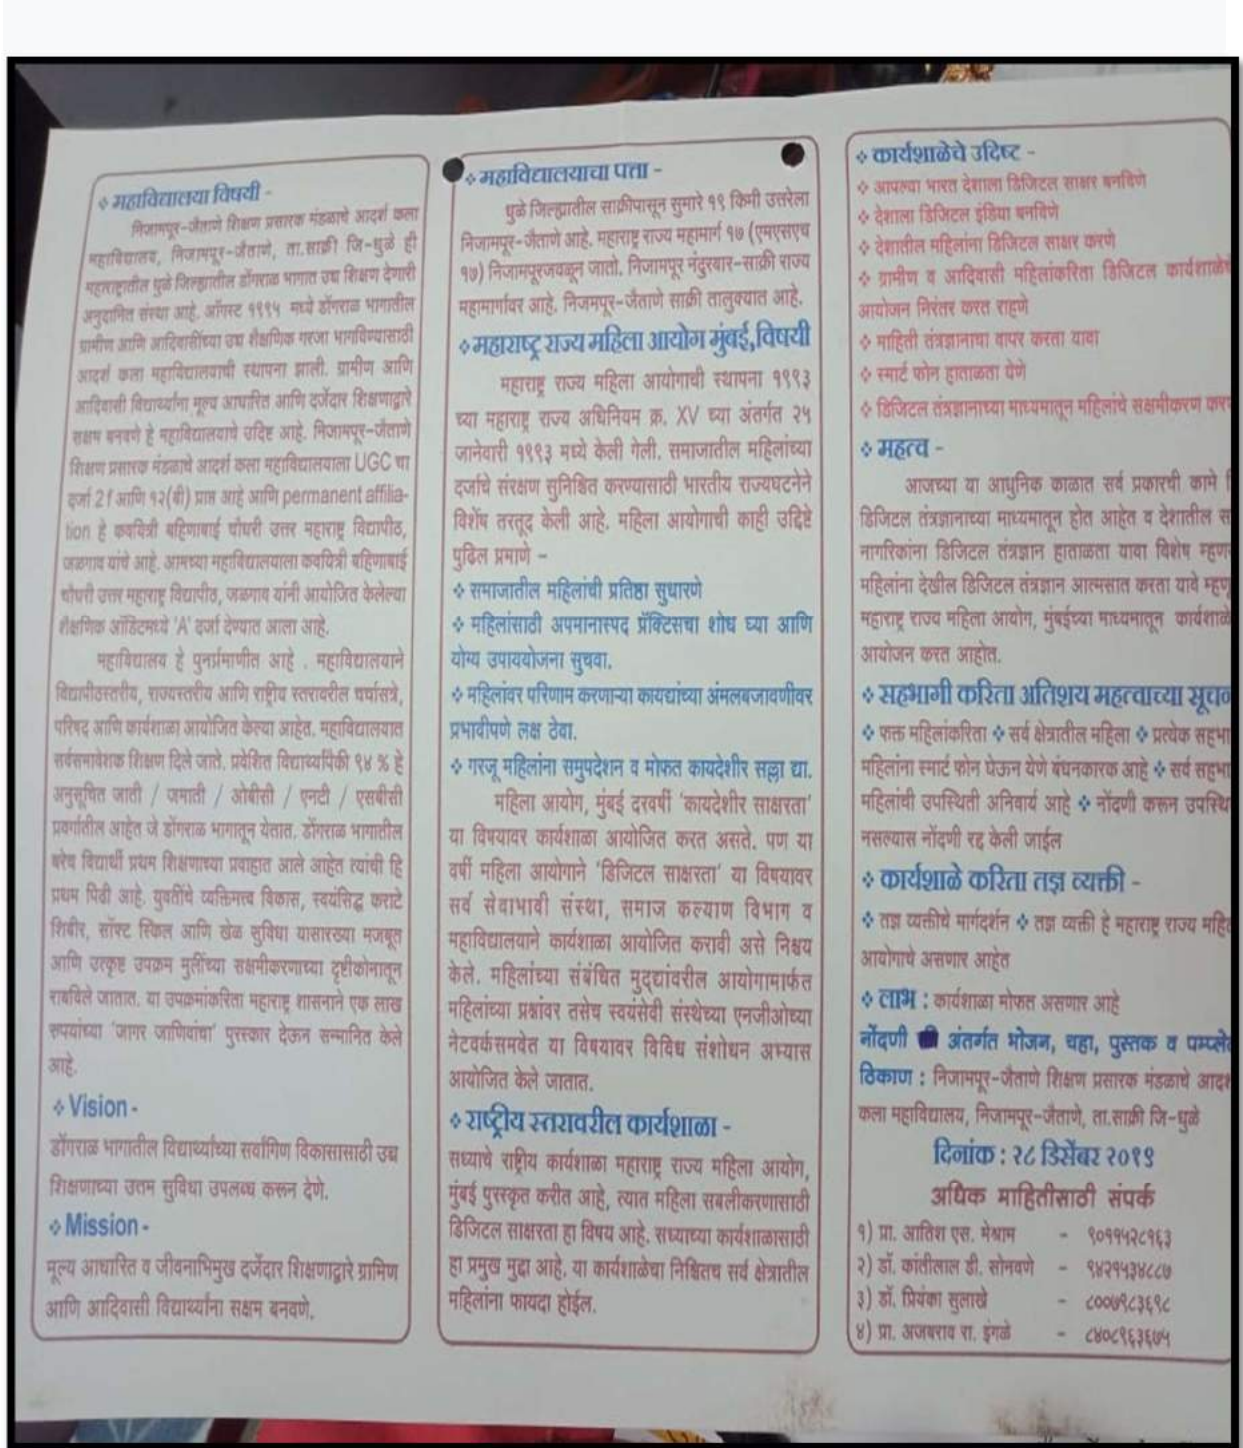 ❖ महाविद्यालया विषयी -
निजामपूर-जैताणे शिक्षण प्रसारक मंडळाचे आदर्श कला
महाविद्यालय, निजामपूर-जैताणे, ता.साक्री जि-धुळे ही
महाराष्ट्रातील धुळे जिल्ह्यातील डोंगराळ भागात उच्च शिक्षण देणारी
अनुदानित संस्था आहे. ऑगस्ट १९९५ मध्ये डोंगराळ भागातील
ग्रामीण आणि आदिवासींच्या उच्च शैक्षणिक गरजा भागविण्यासाठी
आदर्श कला महाविद्यालयाची स्थापना झाली. ग्रामीण आणि
आदिवासी विद्यार्थ्यांना मूल्य आधारित आणि दर्जेदार शिक्षणाद्वारे
सक्षम बनवणे हे महाविद्यालयाचे उदिष्ट आहे. निजामपूर-जैताणे
शिक्षण प्रसारक मंडळाचे आदर्श कला महाविद्यालयाला UGC चा
दर्जा 2 f आणि १२(बी) प्राप्त आहे आणि permanent affilia-
tion हे कवयित्री बहिणाबाई चौधरी उत्तर महाराष्ट्र विद्यापीठ,
जळगाव यांचे आहे. आमच्या महाविद्यालयाला कवयित्री बहिणाबाई
चौधरी उत्तर महाराष्ट्र विद्यापीठ, जळगाव यांनी आयोजित केलेल्या
शैक्षणिक ऑडिटमध्ये 'A' दर्जा देण्यात आला आहे.
महाविद्यालय हे पुनर्प्रमाणीत आहे . महाविद्यालयाने
विद्यापीठस्तरीय, राज्यस्तरीय आणि राष्ट्रीय स्तरावरील चर्चासत्रे,
परिषद आणि कार्यशाळा आयोजित केल्या आहेत. महाविद्यालयात
सर्वसमावेशक शिक्षण दिले जाते. प्रवेशित विद्यार्थ्यांपैकी ९४ % हे
अनुसूचित जाती / जमाती / ओबीसी / एनटी / एसबीसी
प्रवर्गातील आहेत जे डोंगराळ भागातून येतात. डोंगराळ भागातील
बरेच विद्यार्थी प्रथम शिक्षणाच्या प्रवाहात आले आहेत त्यांची हि
प्रथम पिढी आहे. युवतींचे व्यक्तिमत्त्व विकास, स्वयंसिद्ध कराटे
शिबीर, सॉफ्ट स्किल आणि खेळ सुविधा यासारख्या मजबूत
आणि उत्कृष्ट उपक्रम मुलींच्या सक्षमीकरणाच्या दृष्टीकोनातून
राबविले जातात. या उपक्रमांकरिता महाराष्ट्र शासनाने एक लाख
रुपयांच्या 'जागर जाणिवांचा' पुरस्कार देऊन सन्मानित केले
आहे.
❖ Vision -
डोंगराळ भागातील विद्यार्थ्यांच्या सर्वांगिण विकासासाठी उच्च
शिक्षणाच्या उत्तम सुविधा उपलब्ध करून देणे.
❖ Mission -
मूल्य आधारित व जीवनाभिमुख दर्जेदार शिक्षणाद्वारे ग्रामिण
आणि आदिवासी विद्यार्थ्यांना सक्षम बनवणे.
❖ महाविद्यालयाचा पत्ता -
धुळे जिल्ह्यातील साक्रीपासून सुमारे १९ किमी उत्तरेला
निजामपूर-जैताणे आहे. महाराष्ट्र राज्य महामार्ग १७ (एमएसएच
१७) निजामपूरजवळून जातो. निजामपूर नंदुरबार-साक्री राज्य
महामार्गावर आहे. निजमपूर-जैताणे साक्री तालुक्यात आहे.
❖ महाराष्ट्र राज्य महिला आयोग मुंबई,विषयी
महाराष्ट्र राज्य महिला आयोगाची स्थापना १९९३
च्या महाराष्ट्र राज्य अधिनियम क्र. XV च्या अंतर्गत २५
जानेवारी १९९३ मध्ये केली गेली. समाजातील महिलांच्या
दर्जाचे संरक्षण सुनिश्चित करण्यासाठी भारतीय राज्यघटनेने
विशेष तरतूद केली आहे. महिला आयोगाची काही उद्दिष्टे
पुढिल प्रमाणे -
❖ समाजातील महिलांची प्रतिष्ठा सुधारणे
❖ महिलांसाठी अपमानास्पद प्रॅक्टिसचा शोध घ्या आणि
योग्य उपाययोजना सुचवा.
❖ महिलांवर परिणाम करणाऱ्या कायद्यांच्या अंमलबजावणीवर
प्रभावीपणे लक्ष ठेवा.
❖ गरजू महिलांना समुपदेशन व मोफत कायदेशीर सल्ला द्या.
महिला आयोग, मुंबई दरवर्षी 'कायदेशीर साक्षरता'
या विषयावर कार्यशाळा आयोजित करत असते. पण या
वर्षी महिला आयोगाने 'डिजिटल साक्षरता' या विषयावर
सर्व सेवाभावी संस्था, समाज कल्याण विभाग व
महाविद्यालयाने कार्यशाळा आयोजित करावी असे निश्चय
केले. महिलांच्या संबंधित मुद्द्यांवरील आयोगामार्फत
महिलांच्या प्रश्नांवर तसेच स्वयंसेवी संस्थेच्या एनजीओच्या
नेटवर्कसमवेत या विषयावर विविध संशोधन अभ्यास
आयोजित केले जातात.
❖ राष्ट्रीय स्तरावरील कार्यशाळा -
सध्याचे राष्ट्रीय कार्यशाळा महाराष्ट्र राज्य महिला आयोग,
मुंबई पुरस्कृत करीत आहे, त्यात महिला सबलीकरणासाठी
डिजिटल साक्षरता हा विषय आहे. सध्याच्या कार्यशाळासाठी
हा प्रमुख मुद्दा आहे. या कार्यशाळेचा निश्चितच सर्व क्षेत्रातील
महिलांना फायदा होईल.
❖ कार्यशाळेचे उदिष्ट -
❖ आपल्या भारत देशाला डिजिटल साक्षर बनविणे
❖ देशाला डिजिटल इंडिया बनविणे
❖ देशातील महिलांना डिजिटल साक्षर करणे
❖ ग्रामीण व आदिवासी महिलांकरिता डिजिटल
आयोजन निरंतर करत राहणे
❖ माहिती तंत्रज्ञानाचा वापर करता यावा
❖ स्मार्ट फोन हाताळता येणे
❖ डिजिटल तंत्रज्ञानाच्या माध्यमातून महिलांचे सक्षमीकरण
❖ महत्व -
आजच्या या आधुनिक काळात सर्व प्रकारची कामे
डिजिटल तंत्रज्ञानाच्या माध्यमातून होत आहेत व देशातील
नागरिकांना डिजिटल तंत्रज्ञान हाताळता यावा विशेष
महिलांना देखील डिजिटल तंत्रज्ञान आत्मसात करता यावे
महाराष्ट्र राज्य महिला आयोग, मुंबईच्या माध्यमातून
आयोजन करत आहोत.
❖ सहभागी करिता अतिशय महत्वाच्या
❖ फक्त महिलांकरिता ❖ सर्व क्षेत्रातील महिला ❖ प्रत्येक
महिलांना स्मार्ट फोन घेऊन येणे बंधनकारक आहे ❖ सर्व
महिलांची उपस्थिती अनिवार्य आहे ❖ नोंदणी करून
नसल्यास नोंदणी रद्द केली जाईल
❖ कार्यशाळे करिता तज्ञ व्यक्ती -
❖ तज्ञ व्यक्तीचे मार्गदर्शन ❖ तज्ञ व्यक्ती हे महाराष्ट्र राज्य
आयोगाचे असणार आहेत
❖ लाभ : कार्यशाळा मोफत असणार आहे
नोंदणी अंतर्गत भोजन, चहा, पुस्तक व
ठिकाण : निजामपूर-जैताणे शिक्षण प्रसारक मंडळाचे
कला महाविद्यालय, निजामपूर-जैताणे, ता.साक्री जि-धुळे
दिनांक : २८ डिसेंबर २०१९
अधिक माहितीसाठी संपर्क
१) प्रा. आतिश एस. मेश्राम - ९०११५२८१६३
२) डॉ. कांतीलाल डी. सोनवणे - ९४२१५३४८८७
३) डॉ. प्रियंका सुलाखे - ८००७९८३६९८
४) प्रा. अजबराव रा. इंगळे - ८४०८९६३६७५